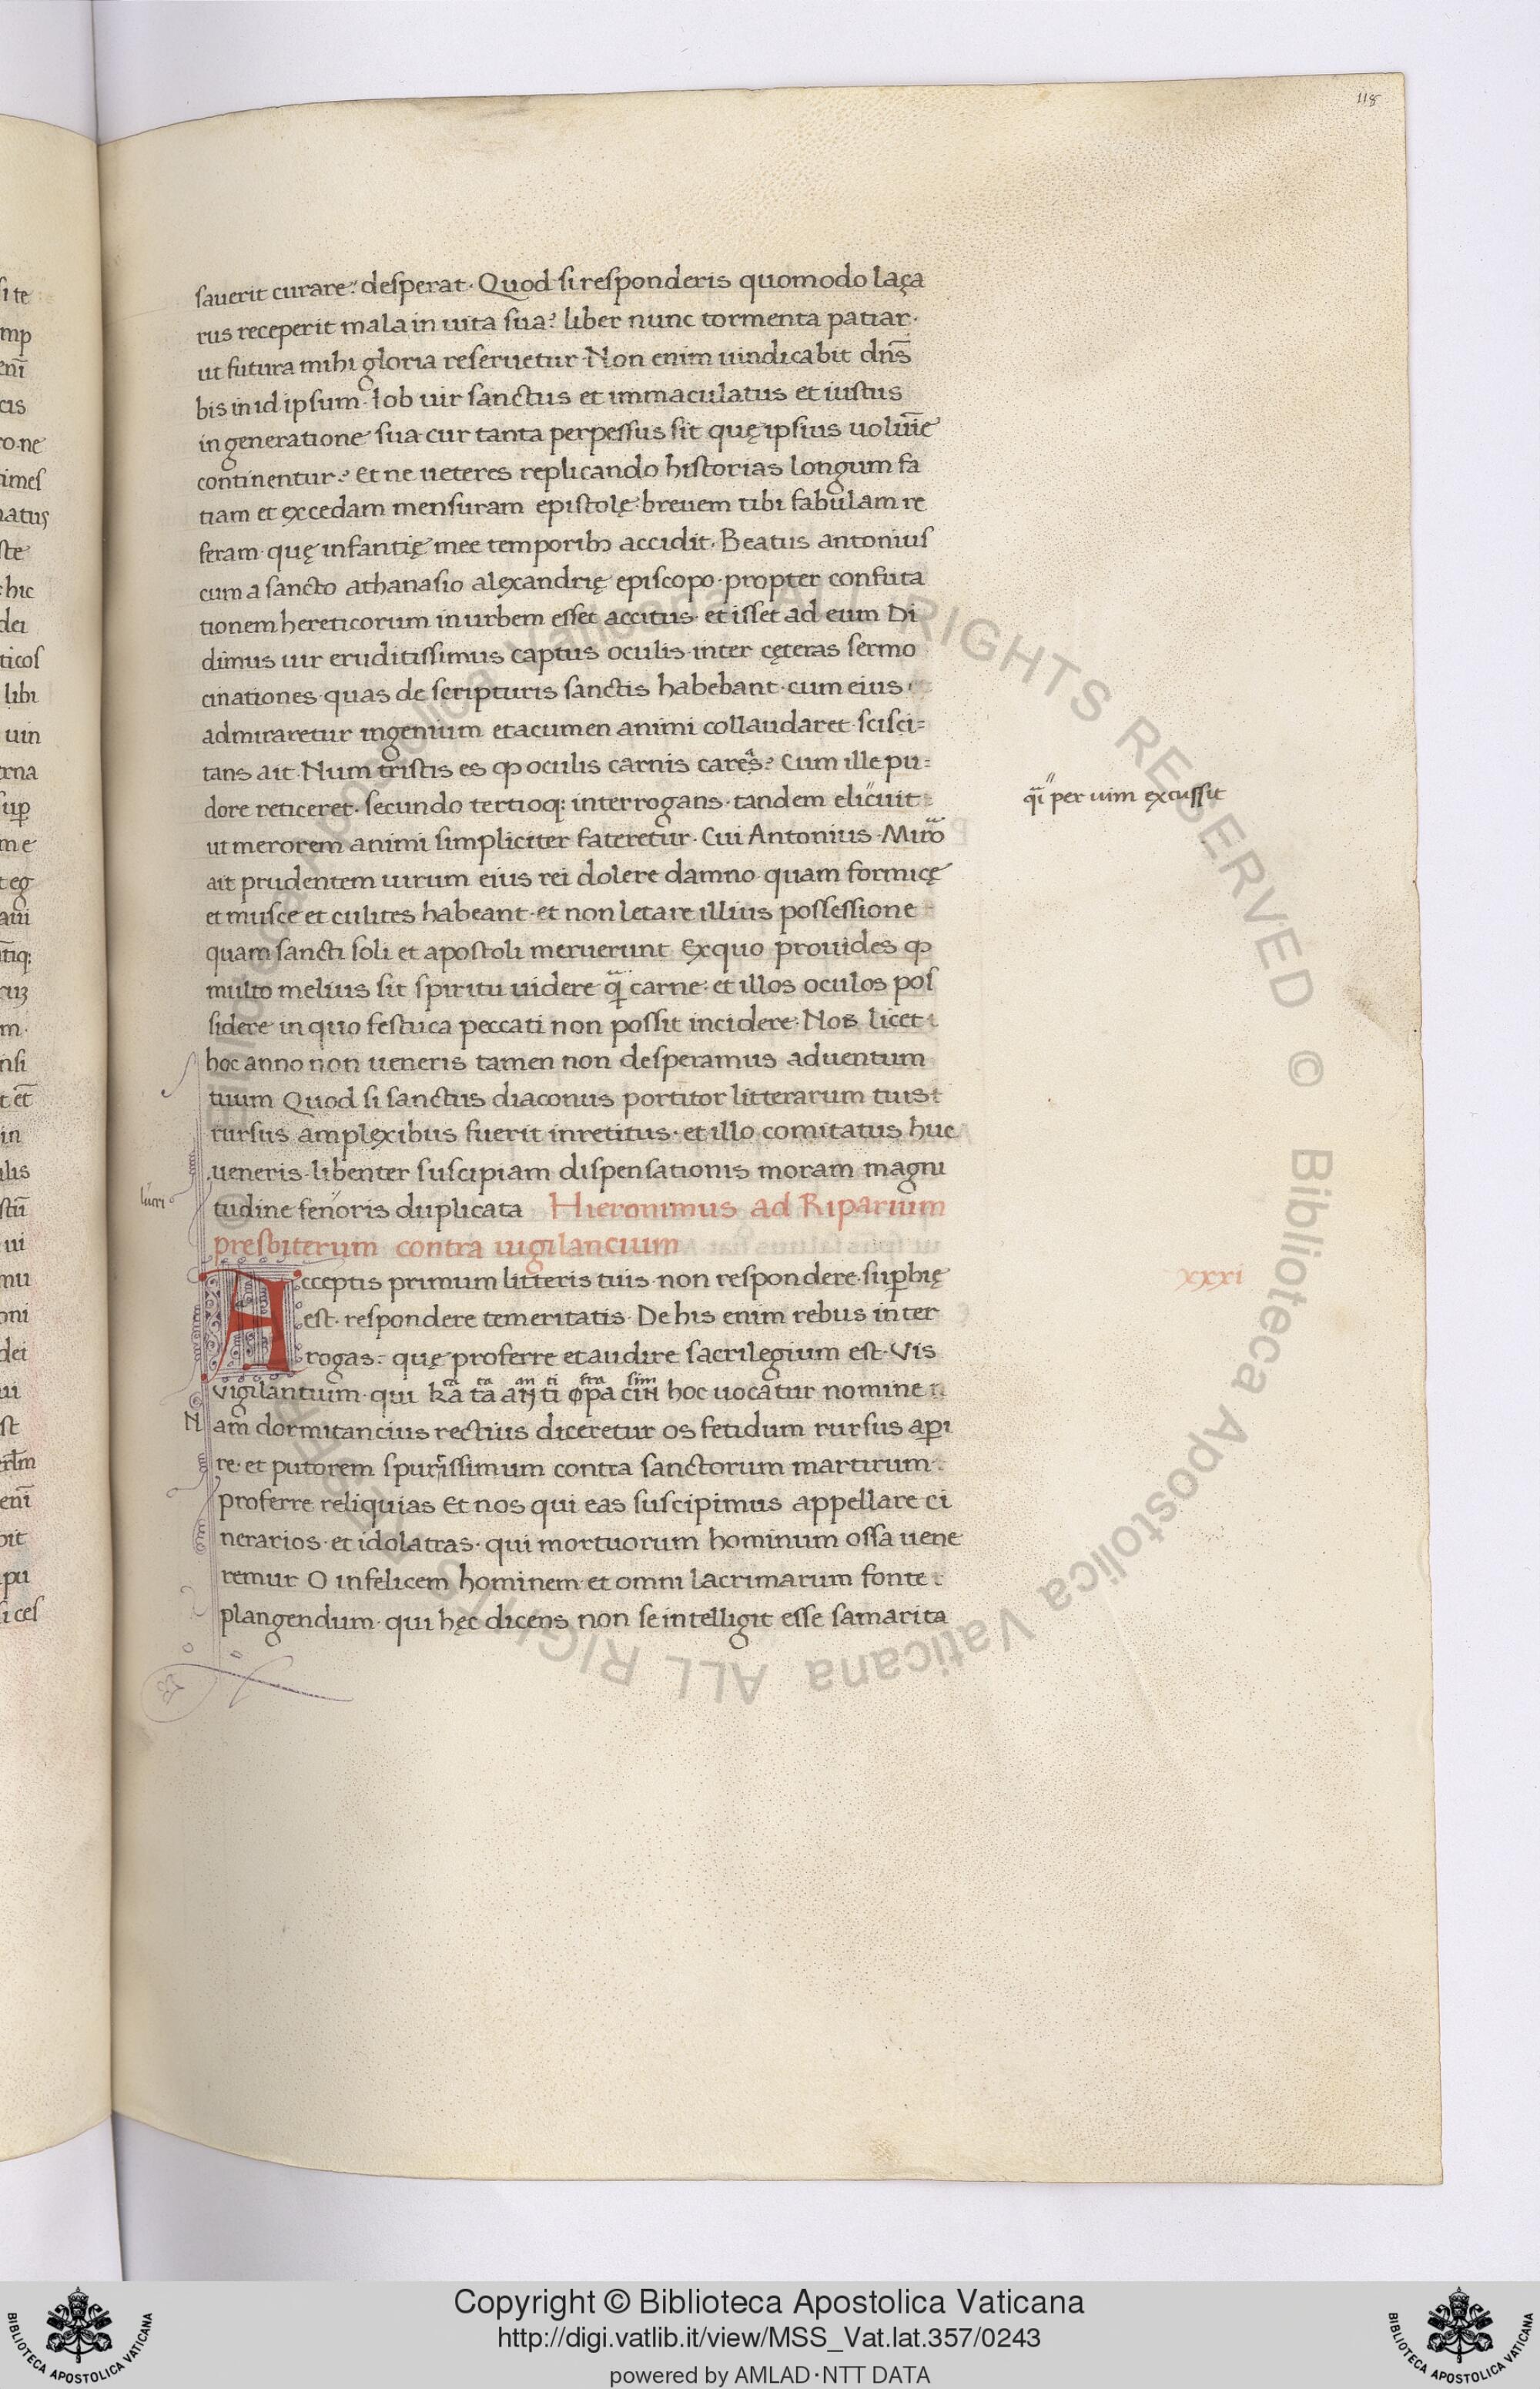 118
sauerit curare? desperat. Quod si responderis quomodo laça
rus receperit mala in uita sua? liber nunc tormenta patiar.
ut futura mihi gloria reseruetur. Non enim uindicabit dñs
bis in id ipsum. Iob uir sanctus et immaculatus et iustus
in generatione sua cur tanta perpessus sit quę ipsius
continentur? Et ne ueteres replicando historias longum fa
tiam et excedam mensuram epistolę breuem tibi fabulam re
feram quę infantię mee temporibꝫ accidit. Beatus antonius
cum a sancto athanasio alexandrię episcopo propter confuta
tionem hereticorum in urbem esset accitus et isset ad eum Di
dimus uir eruditissimus captus oculis inter cęteras sermo
cinationes quas de scripturis sanctis habebant cum eius
admiraretur ingenium et acumen animi collaudaret scisci=
tans ait. Num tristis es ꝙ oculis carnis careas? Cum ille pu=
dore reticeret. secundo tertioq: interrogans tandem elicuit
q̃i per uim excussit
ut merorem animi simpliciter fateretur. Cui Antonius. Miro
ait prudentem uirum eius rei dolere damno quam formicę
et musce et culites habeant et non letare illius possessione
quam sancti soli et apostoli meruerunt Ex quo prouides ꝙ
multo melius sit spiritu uidere q̃ carne: et illos oculos pos
sidere in quo festuca peccati non possit incidere. Nos licet
hoc anno non ueneris tamen non desperamus aduentum
tuum Quod si sanctus diaconus portitor litterarum tuis
rursus amplexibus fuerit inretitus. et illo comitatus huc
ueneris libenter suscipiam dispensationis moram magni
tudine fenoris duplicata Hieronimus ad Riparium
presbiterum contra uigilancium
Acceptis primum litteris tuis non respondere sup̱bię
xxxi
est. respondere temeritatis. De his enim rebus inter
rogas: quę proferre et audire sacrilegium est. Vis
vigilantium qui ka ta an ti φρa cin hoc uocatur nomine
ca ta an ti fra sim
Nam dormitancius rectius diceretur os fetidum rursus ap̱i
re et putorem spurcissimum contra sanctorum martirum
proferre reliquias Et nos qui eas suscipimus appellare ci
nerarios et idolatras. qui mortuorum hominum ossa uene
remur O infelicem hominem et omni lacrimarum fonte
plangendum qui hęc dicens non se intelligit esse samarita
Copyright © Biblioteca Apostolica Vaticana
http://digi.vatlib.it/view/MSS_Vat.lat.357/0243
powered by AMLAD·NTT DATA
BIBLIOTECA APOSTOLICA VATICANA
BIBLIOTECA APOSTOLICA VATICANA